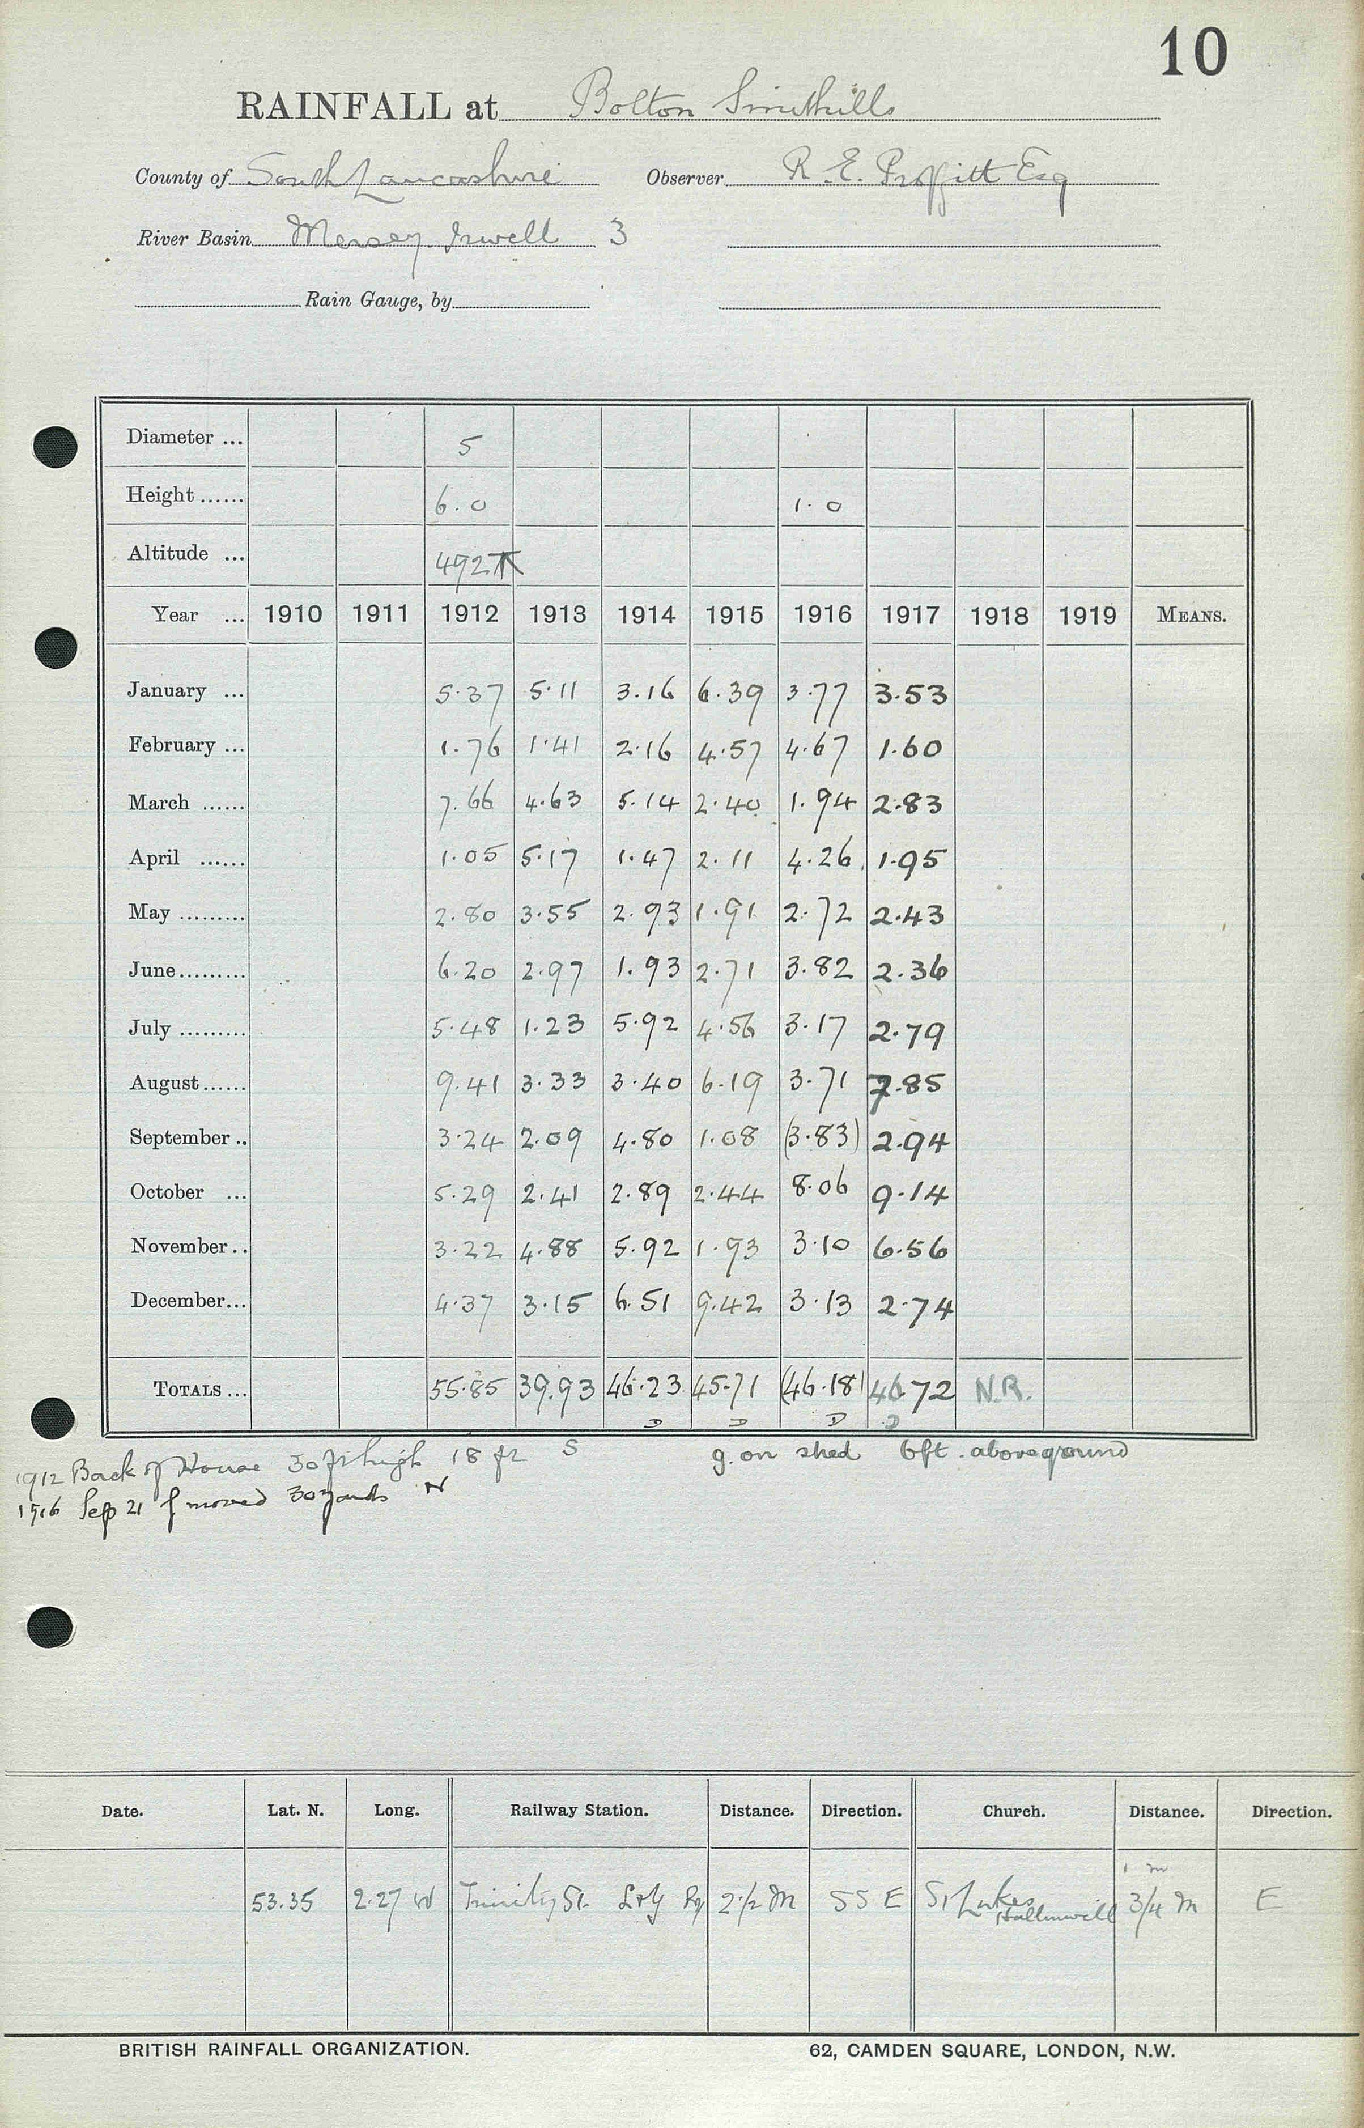 10
RAINFALL at Bolton Smithills
County of South Lancashire Observer R. E. Proffitt Esq
River Basin Mersey. Irwell 3
Rain Gauge, by
Diameter ... 5
Height ...... 6.0 1.0
Altitude ... 492
Year ... 1910 1911 1912 1913 1914 1915 1916 1917 1918 1919 MEANS.
January ... 5.37 5.11 3.16 6.39 3.77 3.53
February ... 1.76 1.41 2.16 4.57 4.67 1.60
March ...... 7.66 4.63 5.14 2.40 1.94 2.83
April ...... 1.05 5.17 1.47 2.11 4.26 1.95
May ......... 2.80 3.55 2.93 1.91 2.72 2.43
June......... 6.20 2.97 1.93 2.71 3.82 2.36
July ......... 5.48 1.23 5.92 4.56 3.17 2.79
August ...... 9.41 3.33 3.40 6.19 3.71 7.85
September .. 3.24 2.09 4.80 1.08 (3.83) 2.94
October ... 5.29 2.41 2.89 2.44 8.06 9.14
November .. 3.22 4.88 5.92 1.93 3.10 6.56
December... 4.37 3.15 6.51 9.42 3.13 2.74
TOTALS ... 55.85 39.93 46.23 45.71 (46.18) 46.72 N.R.
D D D D
1912 Back of House 30 ft high 18 ft S g. on shed 6ft. above ground
1916 Sep 21 moved 30 yards N
Date. Lat. N. Long. Railway Station. Distance. Direction. Church. Distance. Direction.
1 m
53.35 2.27 W Trinity St. L & Y Ry 2 1/2 M SSE St Lukes Halliwell 3/4 M E
BRITISH RAINFALL ORGANIZATION. 62, CAMDEN SQUARE, LONDON, N.W.